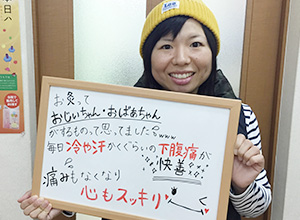 お灸って
おじいちゃん・おばあちゃん
がするものって思ってましたwww
毎日冷や汗かくぐらいの下腹痛が
快善
痛みもなくなり
心もスッキリ